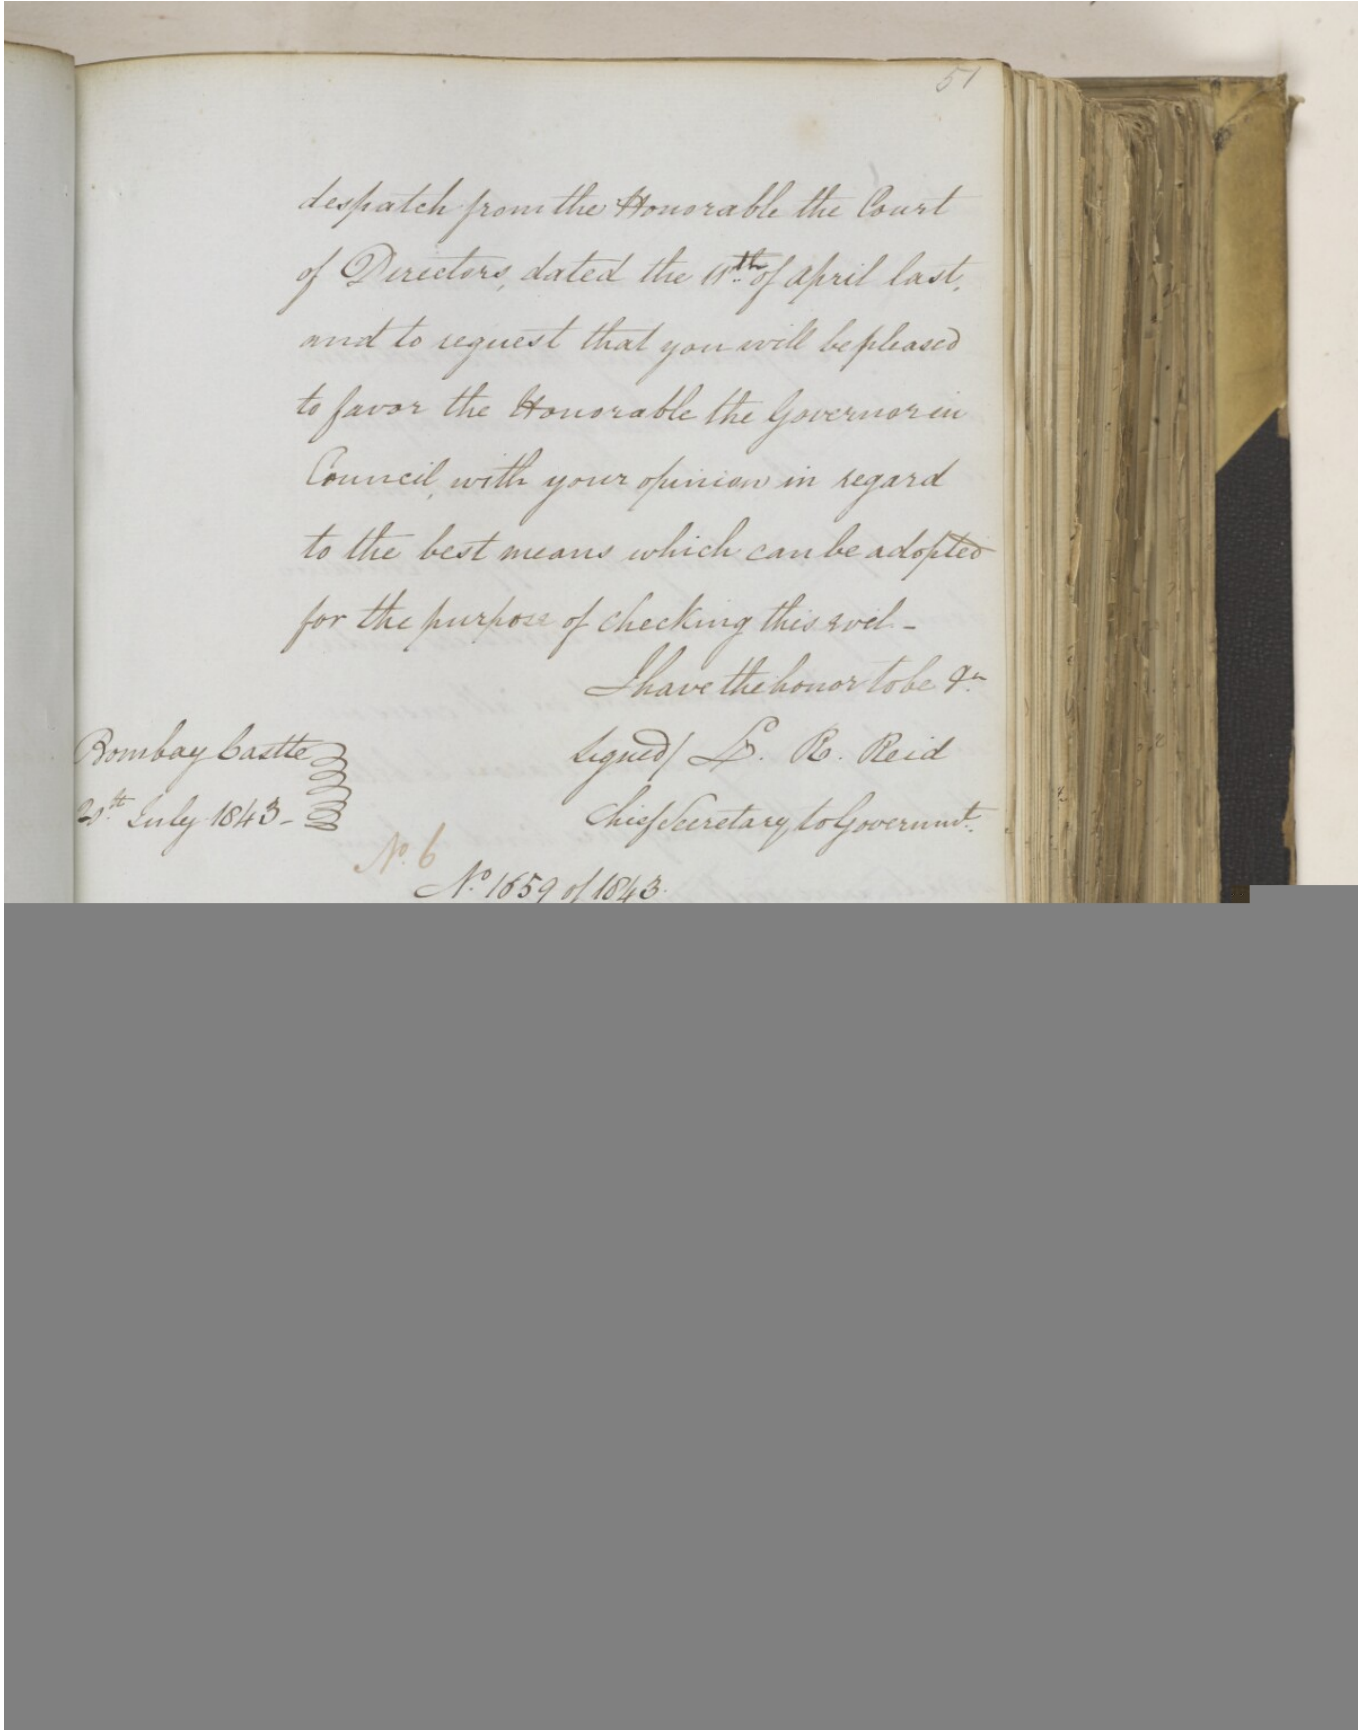 51
despatch from the Honorable the Court
of Directors, dated the 11th of April last,
and to request that you will be pleased
to favor the Honorable the Governor in
Council, with your opinion in regard
to the best means which can be adopted
for the purpose of checking this evil -
I have the honor to be &c
Bombay Castle
signed/ L. R. Reid
July 1843 -
Chief Secretary to Governmt.
No. 6
No. 1659 of 1843.